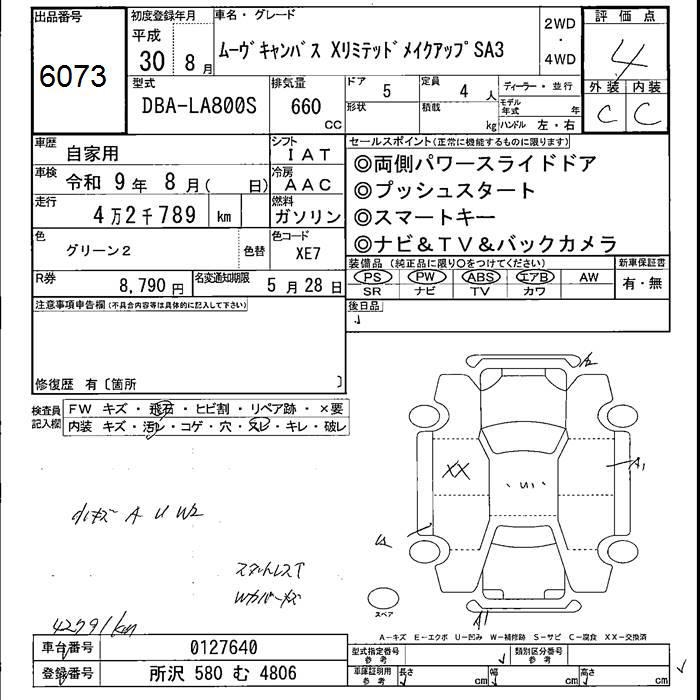 出品番号
6073
初度登録年月
平成
30 8月
車名・グレード
ムーヴキャンバス Xリミテッドメイクアップ SA3
2WD
・
4WD
評価点
4
外装 内装
C C
型式
DBA-LA800S
排気量
660
CC
ドア
5
形状
定員
4人
積載
kg
ディーラー・並行
モデル年式 年
ハンドル 左・右
車歴
自家用
車検
令和 9年 8月( 日)
走行
4万2千789 km
色
グリーン2
色替
シフト
IAT
冷房
AAC
燃料
ガソリン
色コード
XE7
R券
8,790円
名変通知期限
5月28日
セールスポイント(正常に機能するものに限ります)
◎両側パワースライドドア
◎プッシュスタート
◎スマートキー
◎ナビ&TV&バックカメラ
装備品(純正品に限り○をつけてください)
PS PW ABS エアB AW
SR ナビ TV カワ
新車保証書
有・無
後日品
注意事項申告欄(不具合内容等は具体的に記入して下さい)
修復歴 有〔箇所 〕
検査員
記入欄
FW キズ・飛石・ヒビ割・リペア跡・×要
内装 キズ・汚レ・コゲ・穴・スレ・キレ・破レ
XX
U1
A1
A1
小キズ A U W2
42791km
スペア
A-キズ E-エクボ U-凹み W-補修跡 S-サビ C-腐食 XX-交換済
車台番号
0127640
登録番号
所沢 580 む 4806
型式指定番号
参考
類別区分番号
参考
車庫証明用
参考
長さ cm
幅 cm
高さ cm